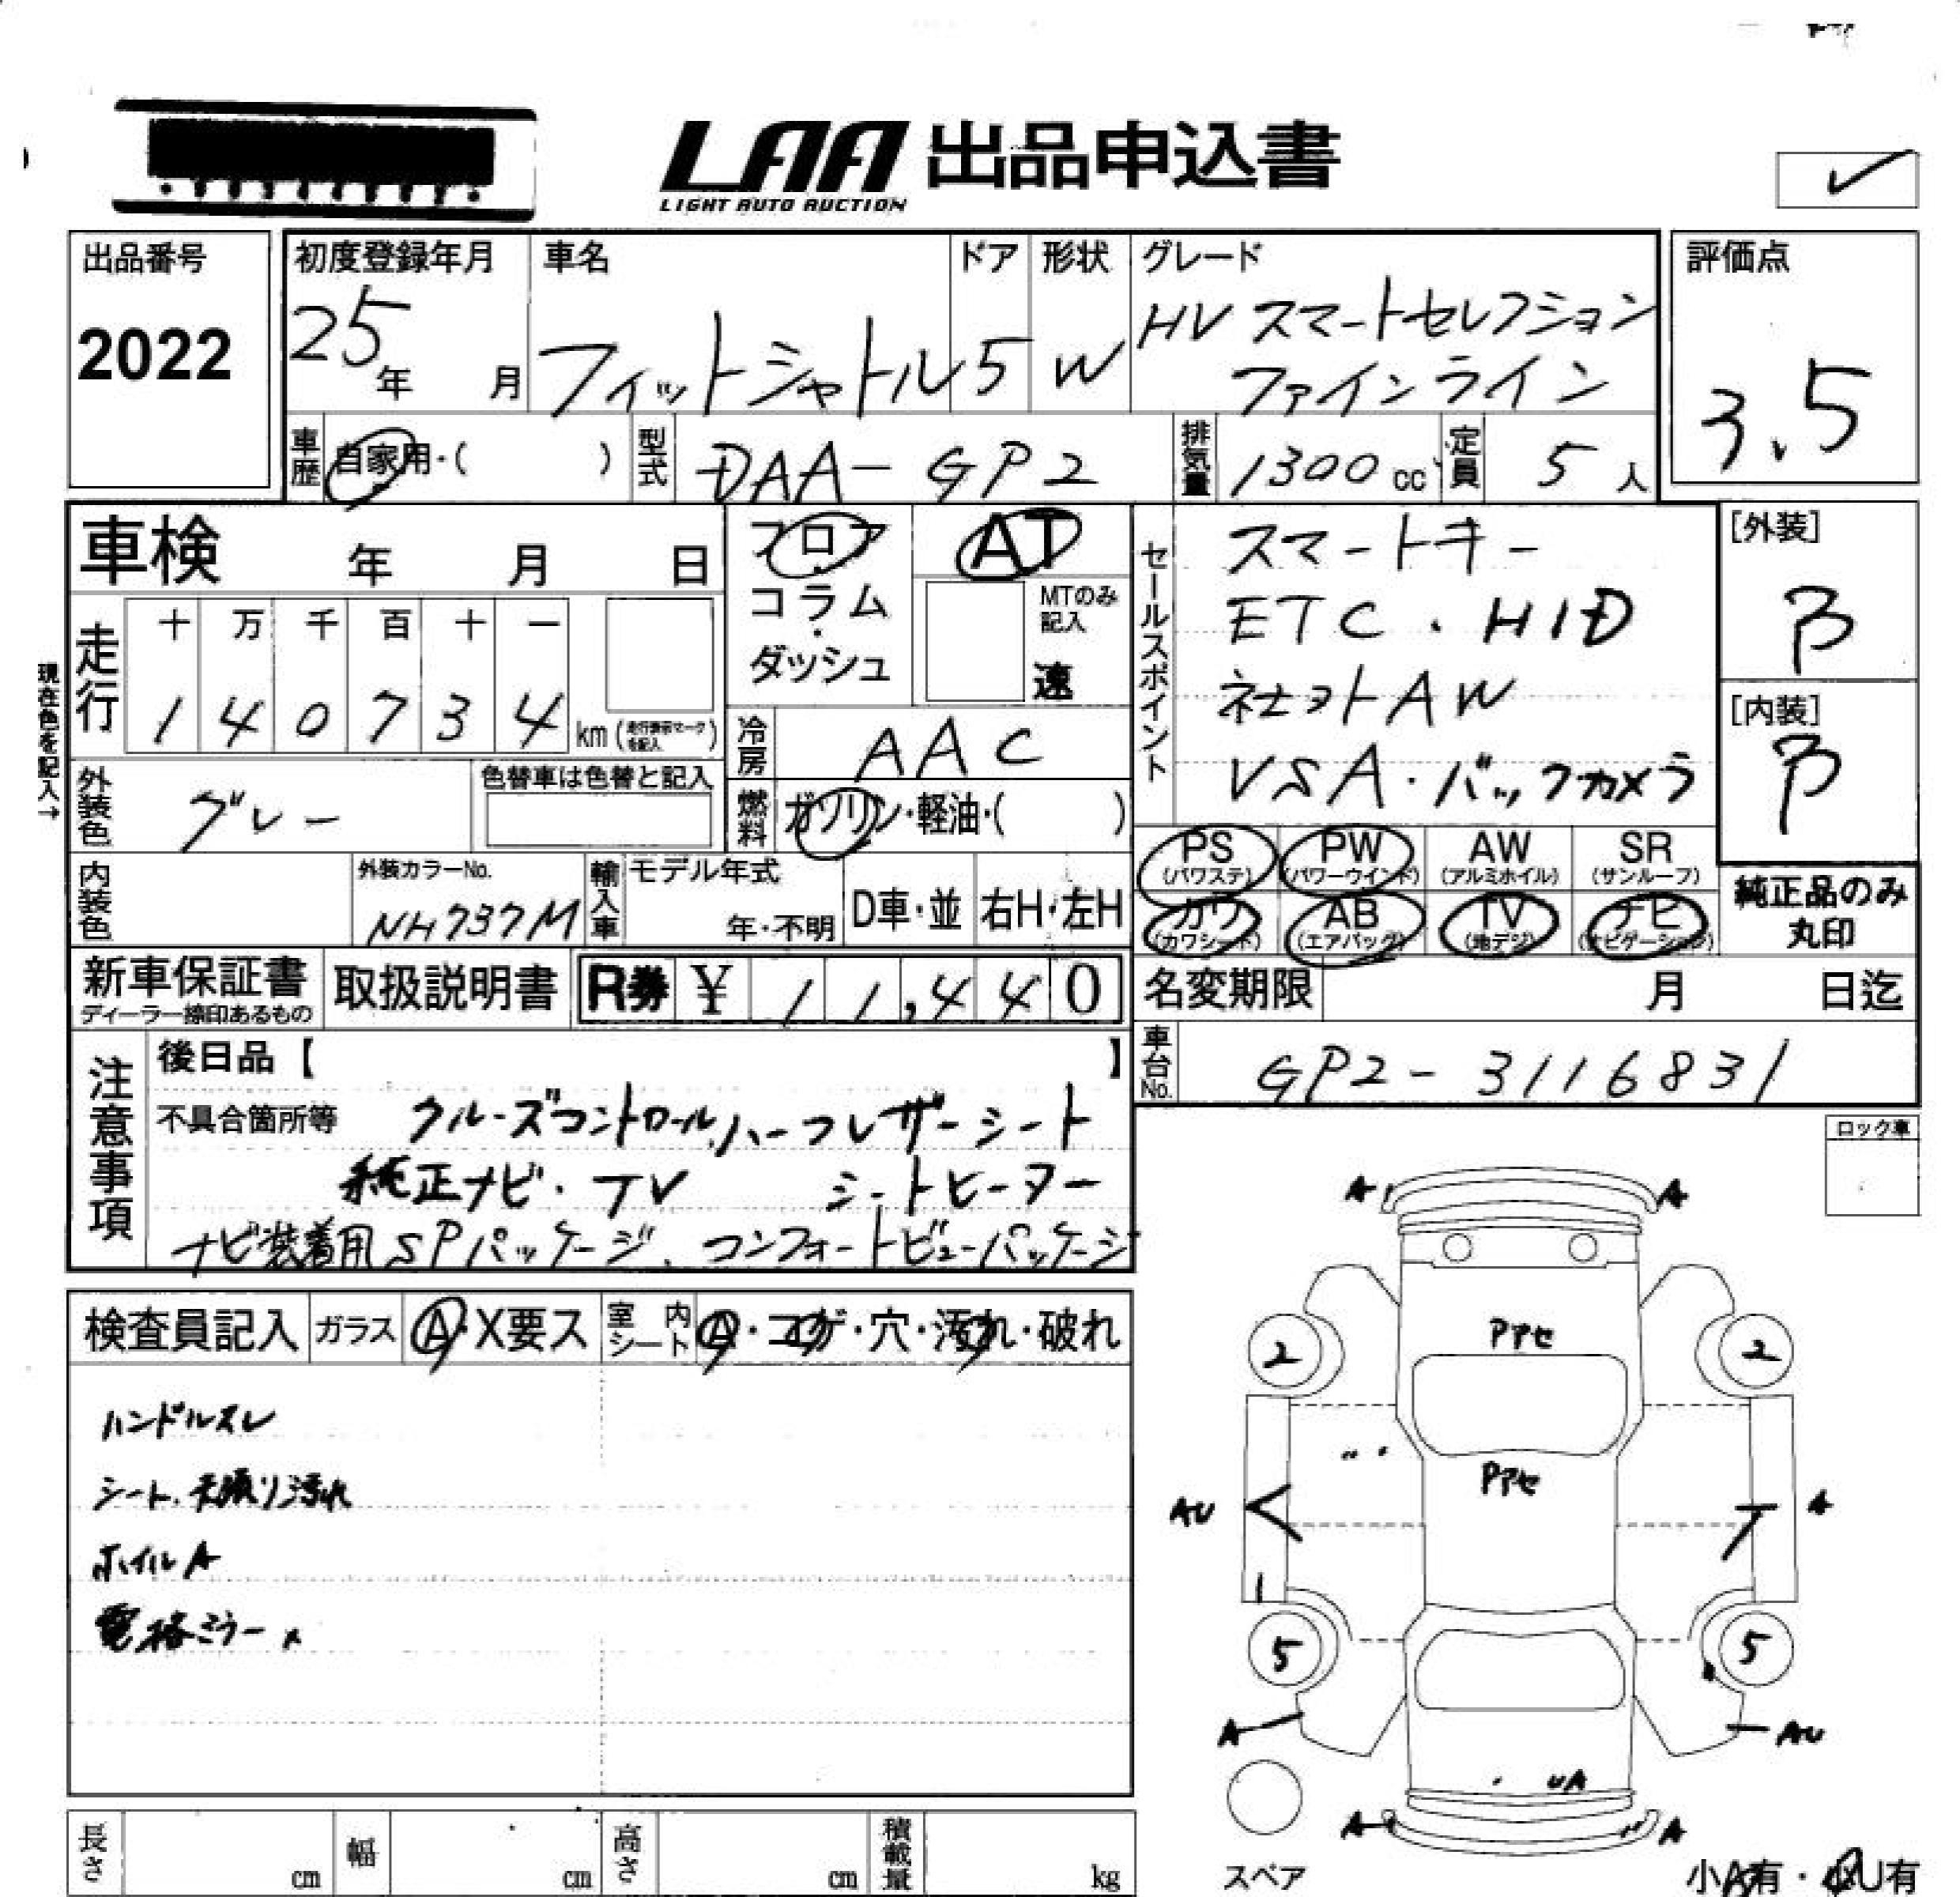 LAA 出品申込書
LIGHT AUTO AUCTION
出品番号
2022
初度登録年月
25年 月
車名
フィットシャトル
ドア
5
形状
W
グレード
HV スマートセレクション
ファインライン
評価点
3.5
車歴 自家用・( )
型式 DAA-GP2
排気量 1300cc
定員 5人
車検 年 月 日
フロア・コラム・ダッシュ
AT
MTのみ記入
速
セールスポイント
スマートキー
ETC・HID
社外AW
VSA・バックカメラ
[外装]
B
[内装]
B
現在色を記入→
走行
十 万 千 百 十 一
1 4 0 7 3 4 km (走行表示マークを記入)
冷房 AAC
外装色 グレー
色替車は色替と記入
燃料 ガソリン・軽油・( )
PS (パワステ) PW (パワーウインド) AW (アルミホイル) SR (サンルーフ)
カワ (カワシート) AB (エアバッグ) TV (地デジ) ナビ (ナビゲーション)
純正品のみ丸印
内装色
外装カラーNo.
NH737M
輸入車 モデル年式
年・不明
D車・並
右H・左H
新車保証書
ディーラー捺印あるもの
取扱説明書
R券 ¥ 11,440
名変期限 月 日迄
車台No. GP2-3116831
注意事項
後日品【 】
不具合箇所等 クルーズコントロール、ハーフレザーシート
純正ナビ・TV シートヒーター
ナビ装着用SPパッケージ、コンフォートビューパッケージ
ロック車
検査員記入 ガラス A・X要ス 室内シート A・コゲ・穴・汚れ・破れ
ハンドルスレ
シート、天張り汚れ
ホイルA
電格ミラーx
A A
Pアセ
2 2
Pアセ
AU A
5 5
A AU
UA
A A
スペア
小A有・小U有
長さ cm 幅 cm 高さ cm 積載量 kg